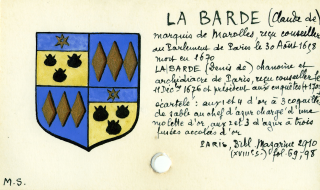 LA BARDE (Claude de)
marquis de Marolles reçu conseiller
au Parlement de Paris le 30 Août 1618
mort en 1670
LA BARDE (Denis de) chanoine et
archidiacre de Paris, reçu conseiller le
11 Déc 1676 et président aux enquêtes
écartelé : aux 1 et 4 d'or à 3 coquilles
de sable au chef d'azur chargé d'une
molette d'or, aux 2 et 3 d'azur à trois
fusées accolées d'or
PARIS, Bibl. Mazarine 2910
(XVIIIe s.) fol. 59, 98
M.S.